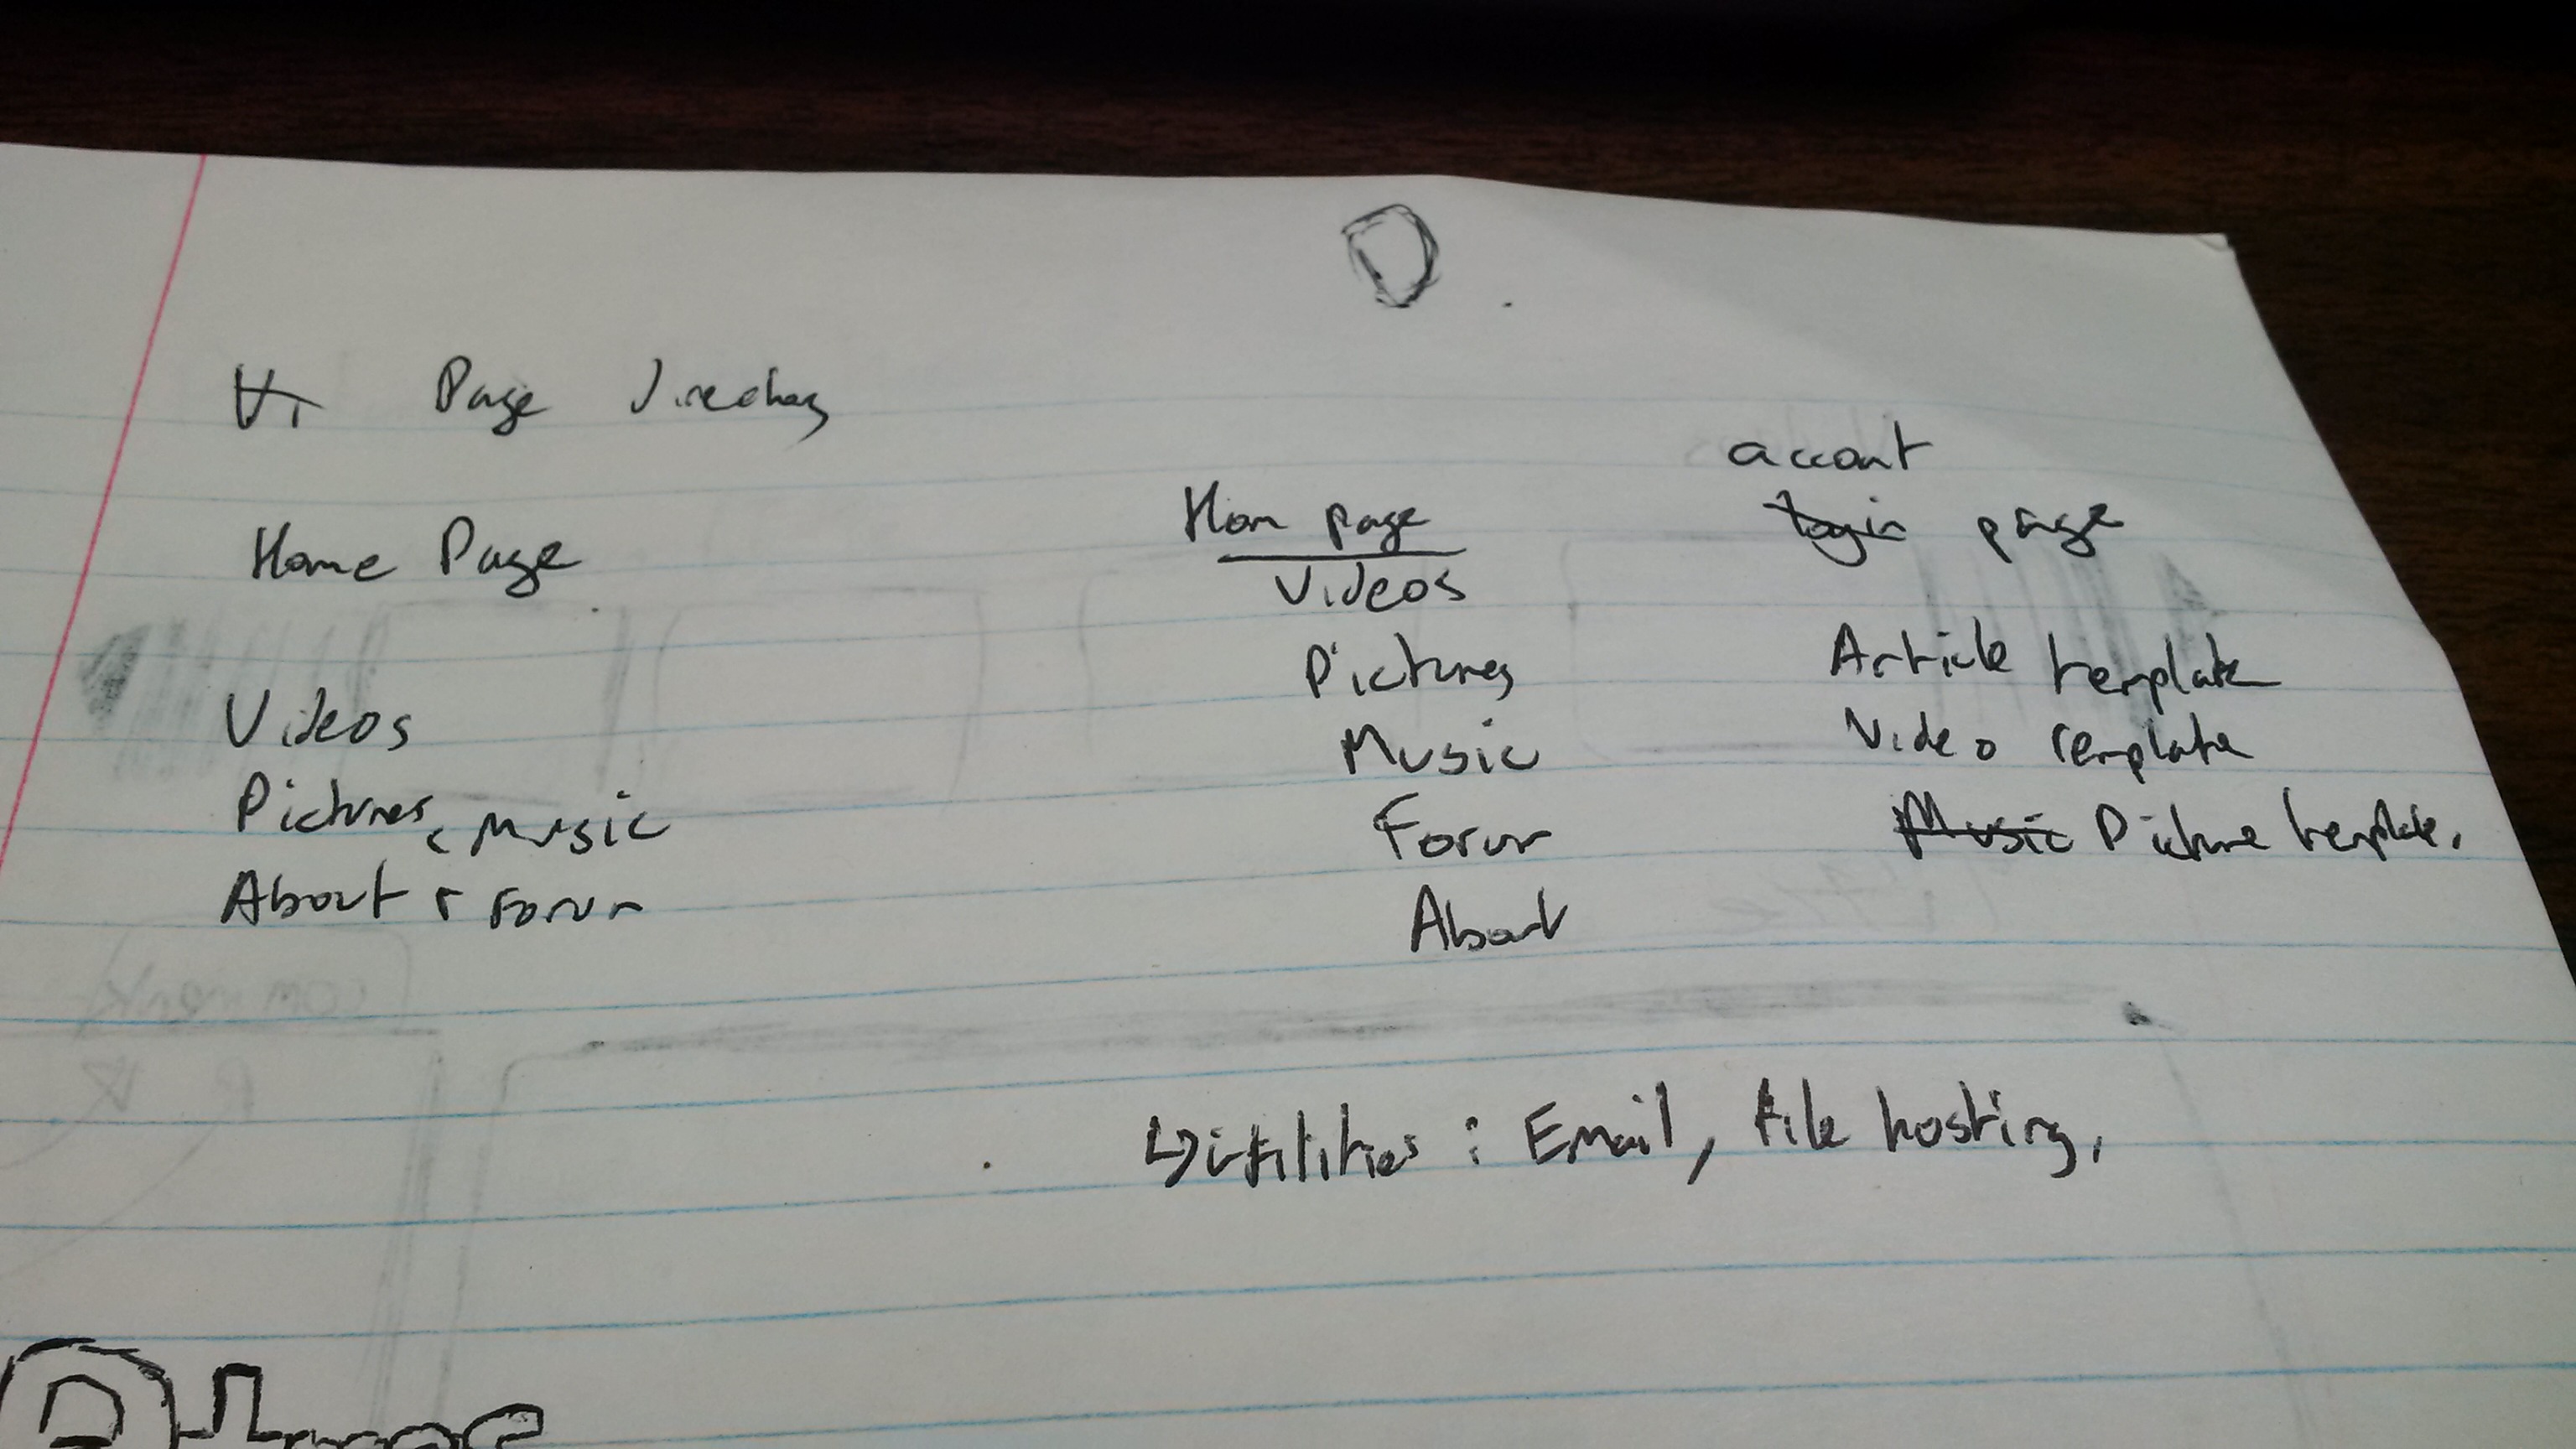 Page Directory
Home Page
Videos
Pictures, Music
About & Forum
Hom page
Videos
Pictures
Music
Forum
About
account
login page
Article template
Video template
Music Picture template.
utilities : Email, file hosting,